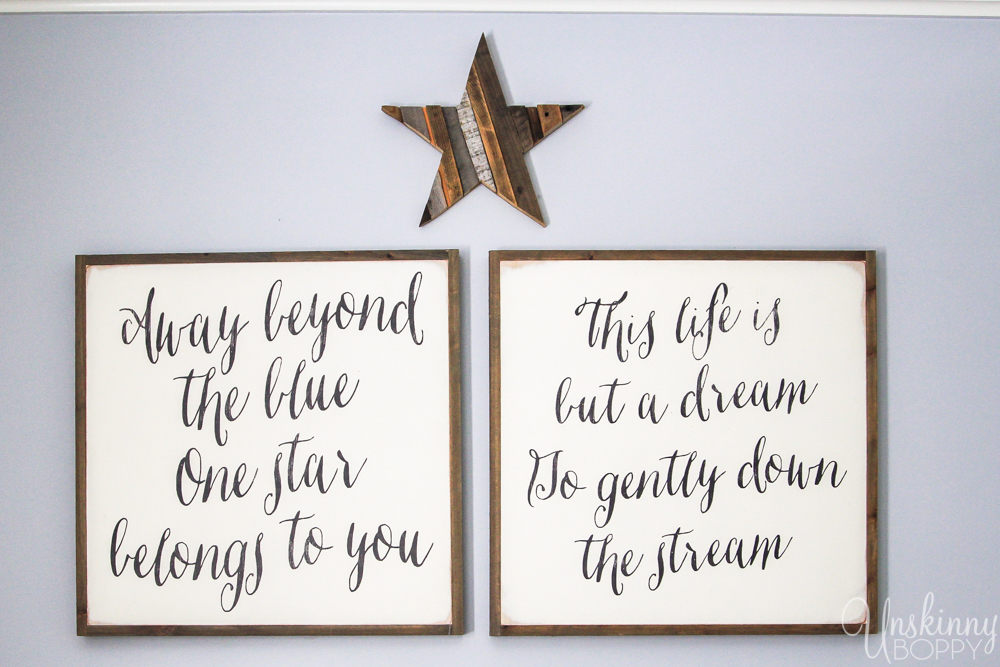 Away beyond
the blue
One star
belongs to you
This life is
but a dream
Go gently down
the stream
Unskinny
BOPPY